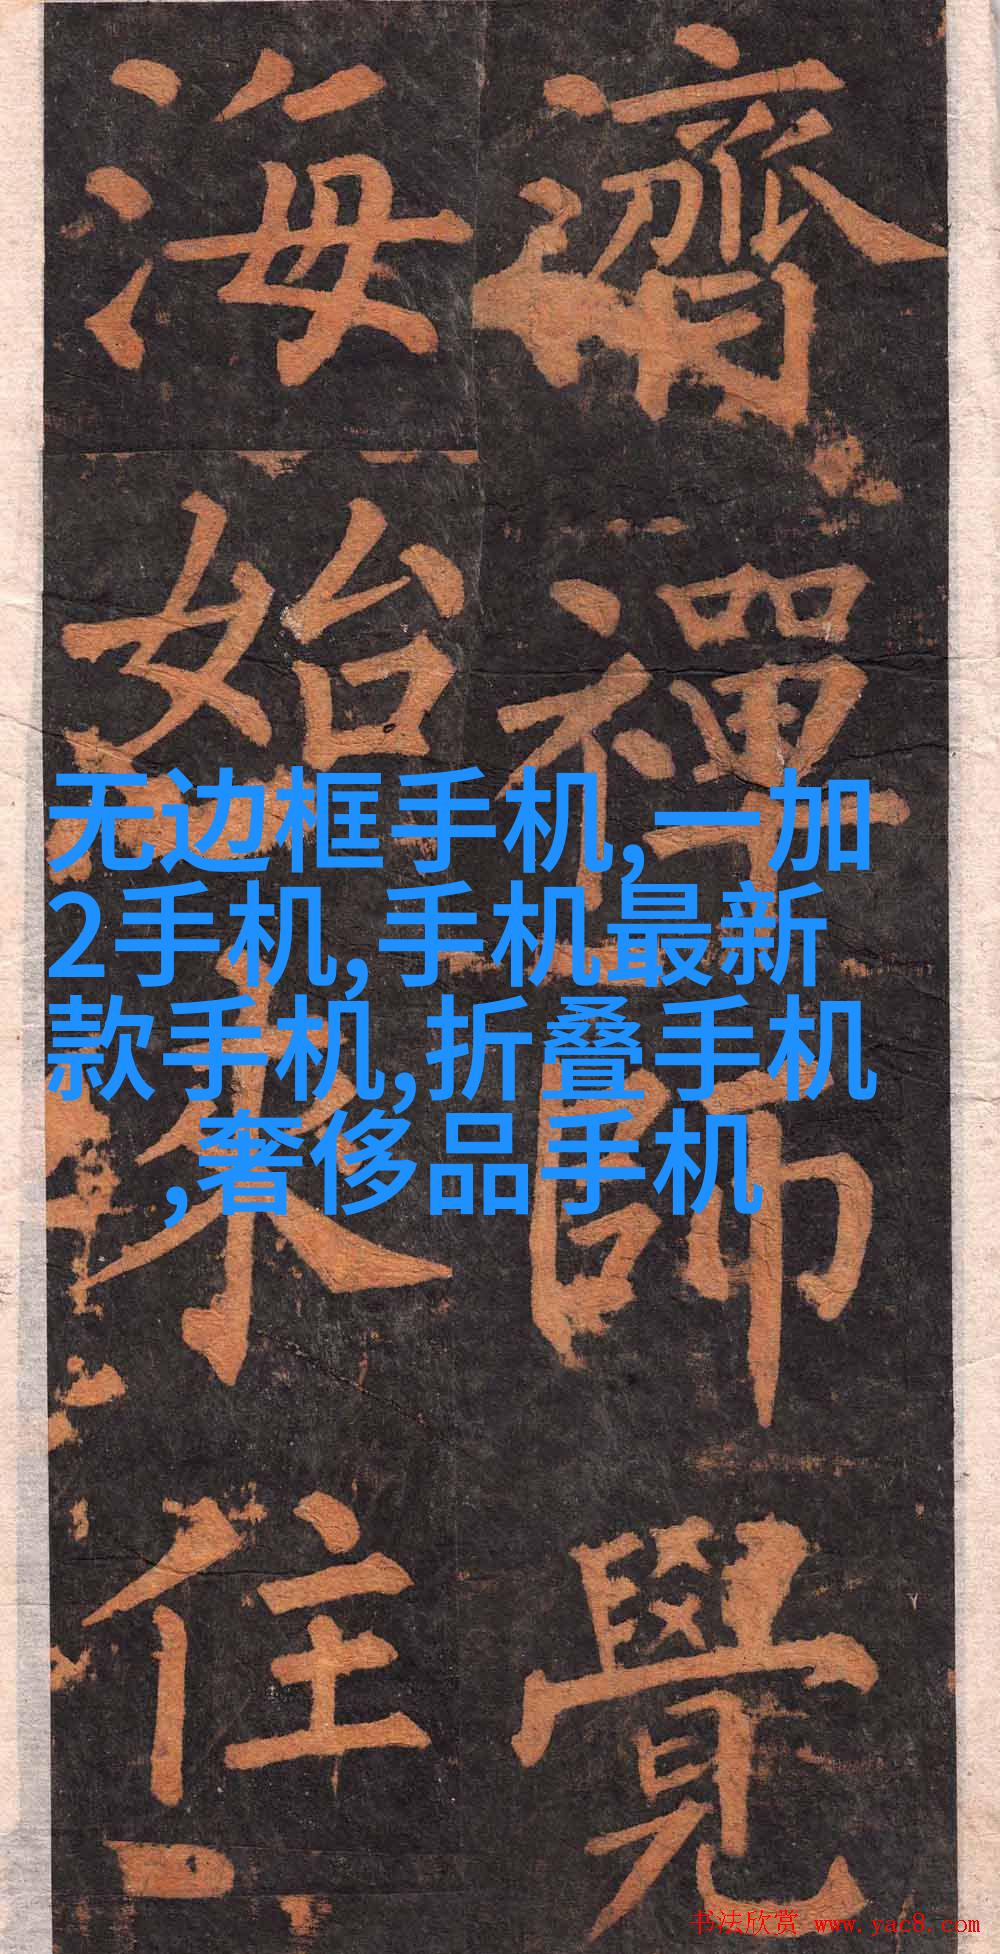 濟禪師覺
海始來住
无边框手机,一加
2手机,手机最新
款手机,折叠手机
,奢侈品手机
书法欣赏 www.yac8.com